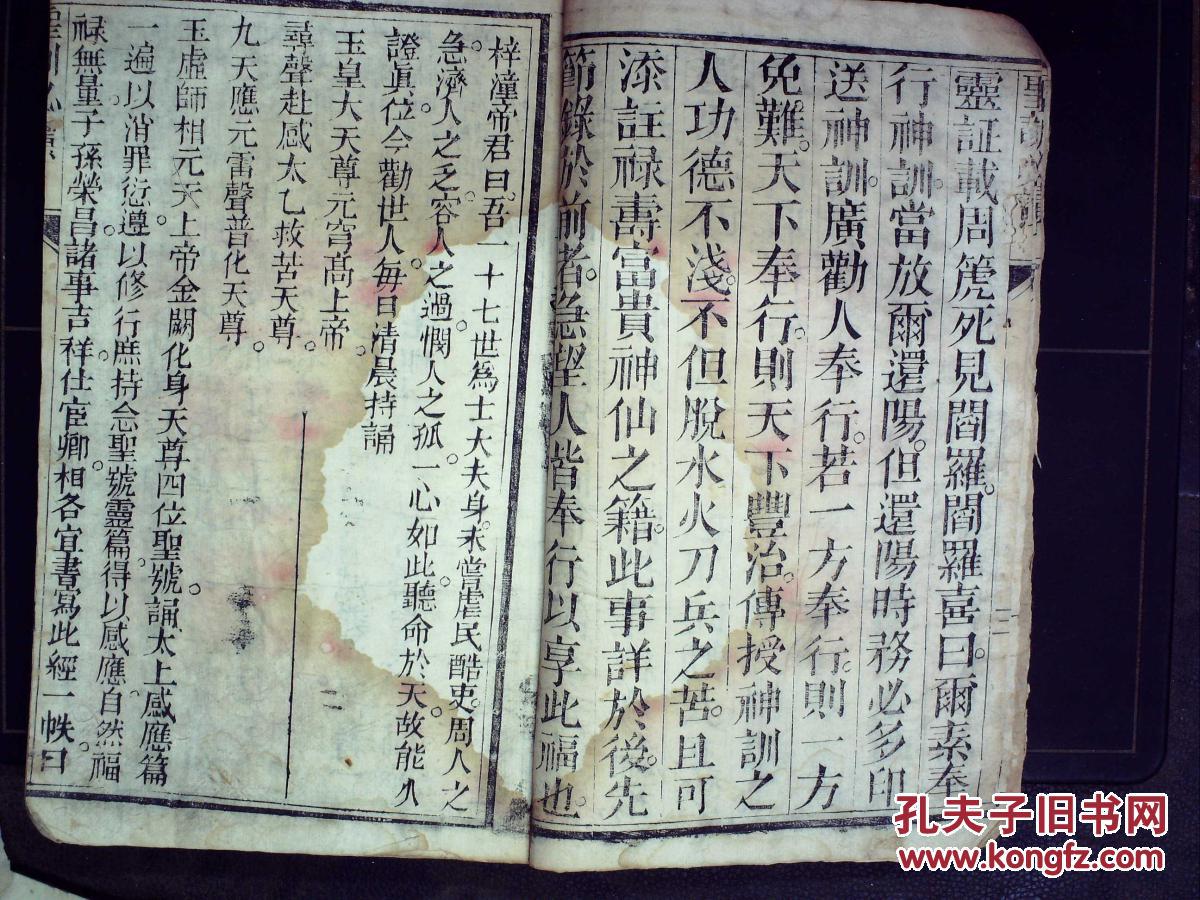 靈証載周篪死見閻羅。閻羅喜曰。爾素奉
行神訓。當放爾還陽。但還陽時務必多印
送神訓。廣勸人奉行。若一方奉行。則一方
免難。天下奉行。則天下豐治。傳授神訓之
人功德不淺。不但脫水火刀兵之苦。且可
添註祿壽富貴神仙之籍。此事詳於後。先
節錄於前者。急望人皆奉行以享此福也。
二
梓潼帝君曰。吾一十七世為士大夫身。未嘗虐民酷吏。周人之
急。濟人之乏。容人之過。憫人之孤。一心如此。聽命於天。故能久
證真位。今勸世人。每日清晨持誦
玉皇大天尊元穹高上帝。
尋聲赴感太乙救苦天尊。
九天應元雷聲普化天尊。
玉虛師相元天上帝金闕化身天尊四位聖號。誦太上感應篇
一遍。以消罪愆。遵以修行。庶持念聖號靈篇。得以感應。自然福
祿無量。子孫榮昌。諸事吉祥。仕宦卿相。各宜書寫此經一帙。曰
二
孔夫子旧书网
www.kongfz.com